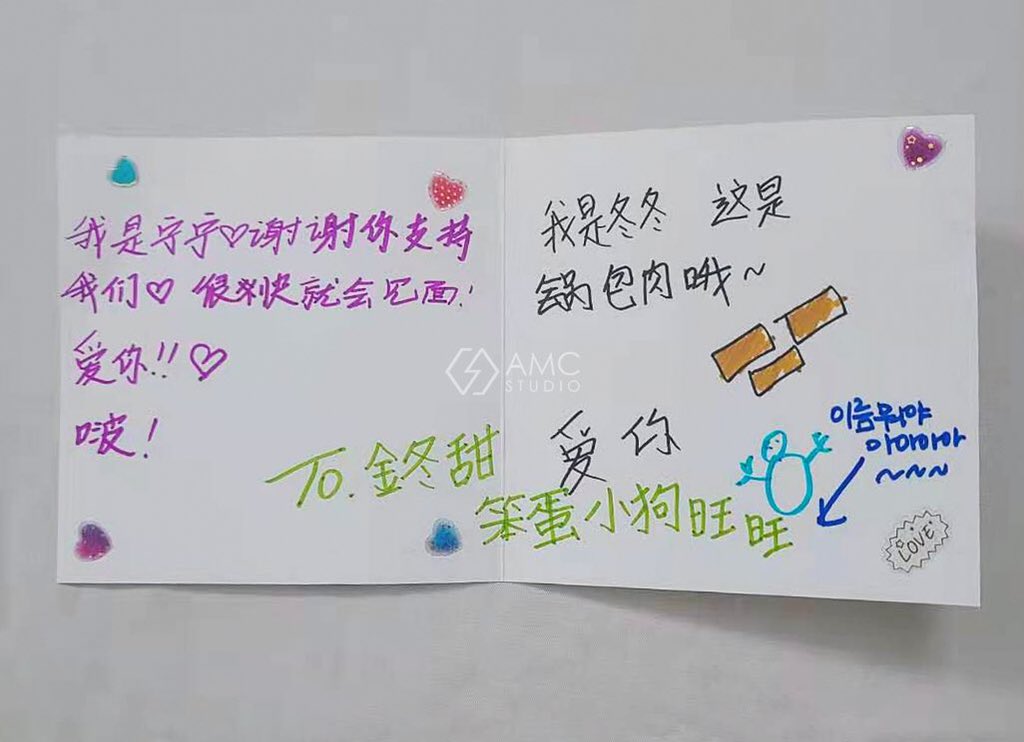 我是宁宁♡谢谢你支持
我们♡ 很快就会见面!
爱你!!♡
啵!
我是冬冬 这是
锅包肉哦~
爱你
To.金冬甜
笨蛋小狗旺旺
이름뭐야
아아아아아
~~~~
LOVE
AMC
STUDIO